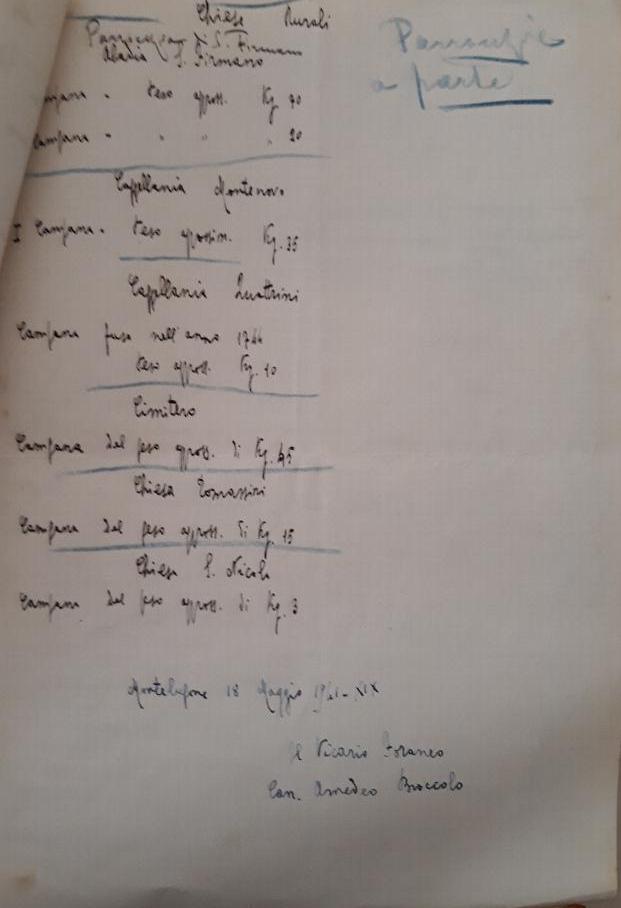 Chiese Rurali
Parrocchia di S. Firmano
Abazia S. Firmano
Campana - Peso appross. Kg. 70
Campana - " " " 20
Cappellania Montenovo
I Campana - Peso appossim. Kg. 35
Cappellania Quattrini
Campana fusa nell'anno 1744
Peso appross. Kg. 10
Cimitero
Campana del peso appross. di Kg. 45
Chiesa Tomassini
Campana del peso appross. di Kg. 15
Chiesa S. Nicola
Campana del peso appross. di Kg. 3
Montelupone 18 Maggio 1941-XIX
Il Vicario Foraneo
Can. Amedeo Broccolo
Parrocchie
a parte